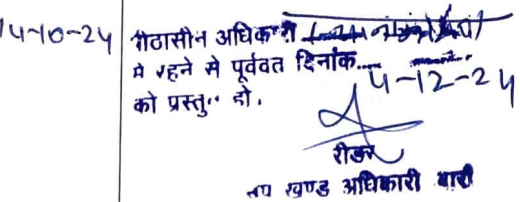 14-10-24 पीठासीन अधिकारी
मे रहने से पूर्ववत दिनांक.... 4-12-24
को प्रस्तुत हो.
रीडर
उप खण्ड अधिकारी बारी